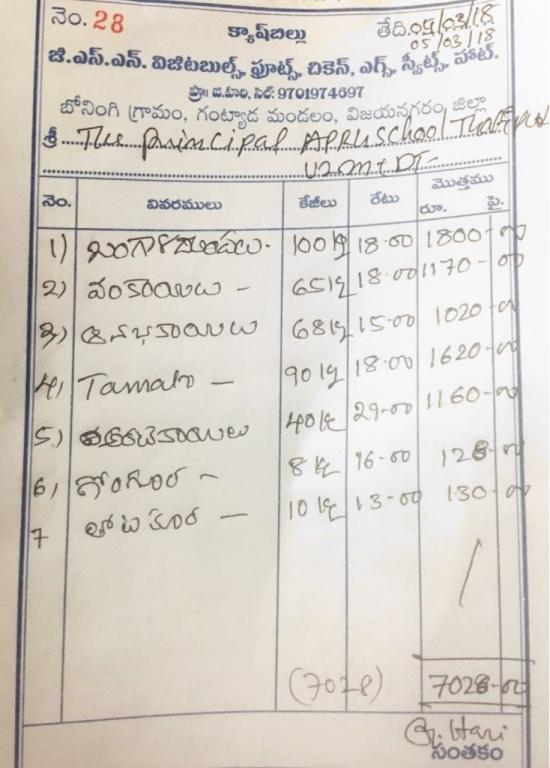 నెం. 28 క్యాష్‌బిల్లు తేది. 04/03/18
05/03/18
జి.ఎస్.ఎన్. విజిటబుల్స్, ఫ్రూట్స్, చికెన్, ఎగ్స్, స్వీట్స్, హాట్.
ప్రొ: జి.హరి, సెల్: 9701974697
బోనింగి గ్రామం, గంట్యాడ మండలం, విజయనగరం జిల్లా
శ్రీ The principal APRUschool
నెం. వివరములు కేజీలు రేటు మొత్తము
రూ. పై.
1) బంగాళదుంపలు - 100 kg 18-00 1800-00
2) వంకాయలు - 65 kg 18-00 1170-00
3) ఆనపకాయలు 68 kg 15-00 1020-00
4) Tamato - 90 kg 18-00 1620-00
5) 40 kg 29-00 1160-00
6) గోంగూర - 8 kg 16-00 128-00
7 తోటకూర - 10 kg 13-00 130-00
(7028) 7028-00
G. Hari
సంతకం